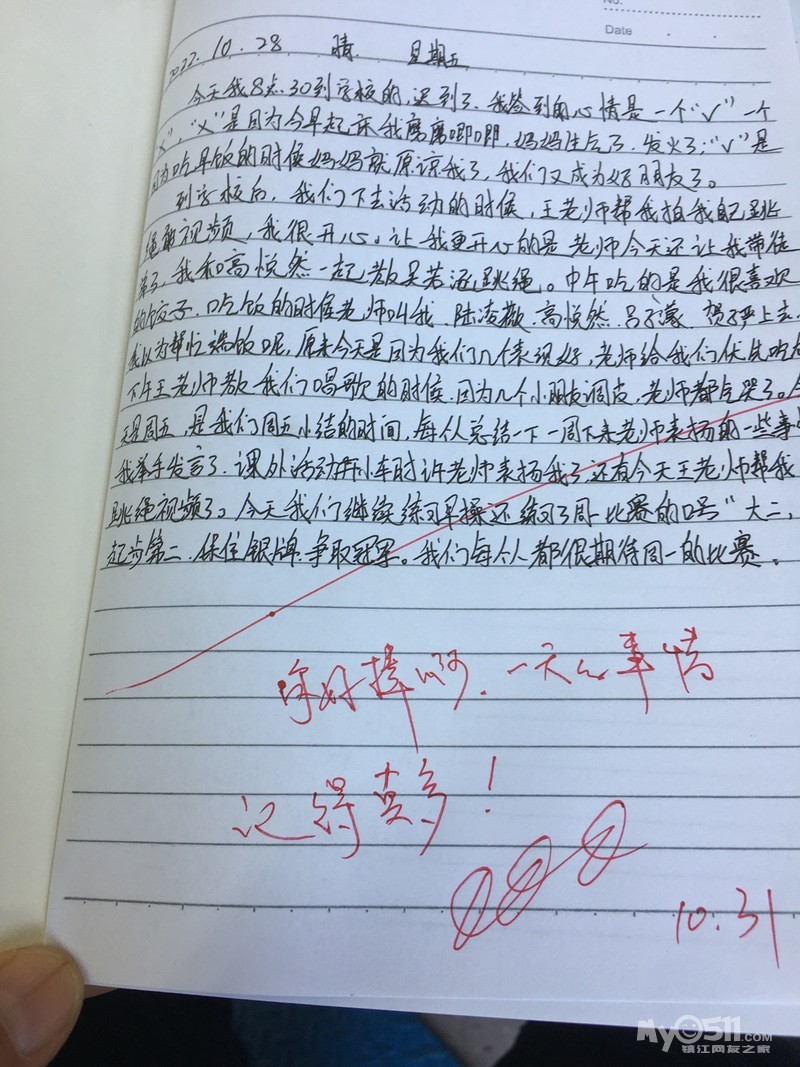 No.
Date
2022.10.28 晴 星期五
今天我8点30到学校的,迟到了.我签到的心情是一个"√"一个
"×","×"是因为今早起床我磨磨唧唧,妈妈生气了,发火了;"√"是
因为吃早饭的时候妈妈就原谅我了,我们又成为好朋友了。
到学校后,我们下去活动的时候,王老师帮我拍我自己跳
绳的视频,我很开心。让我更开心的是老师今天还让我带徒
弟了,我和高悦然一起教吴若涵跳绳。中午吃的是我很喜欢
的饺子.吃饭的时候老师叫我.陆凌薇.高悦然.吕子濛.贺严上去.
我以为帮忙端饭呢,原来今天是因为我们几个表现好,老师给我们优先吃
下午王老师教我们唱歌的时候.因为几个小朋友调皮,老师都气哭了。今
天是周五,是我们周五小结的时间,每人总结一下一周下来老师表扬的一些事
我举手发言了.课外活动开小车时许老师表扬我了还有今天王老师帮我
跳绳视频了。今天我们继续练习早操还练习了周一比赛的口号"大二,
起步第二.保住银牌.争取冠军。我们每个人都很期待周一的比赛。
你好棒啊.一天的事情
记得真多!
10.31
My0511.COM
镇江网友之家